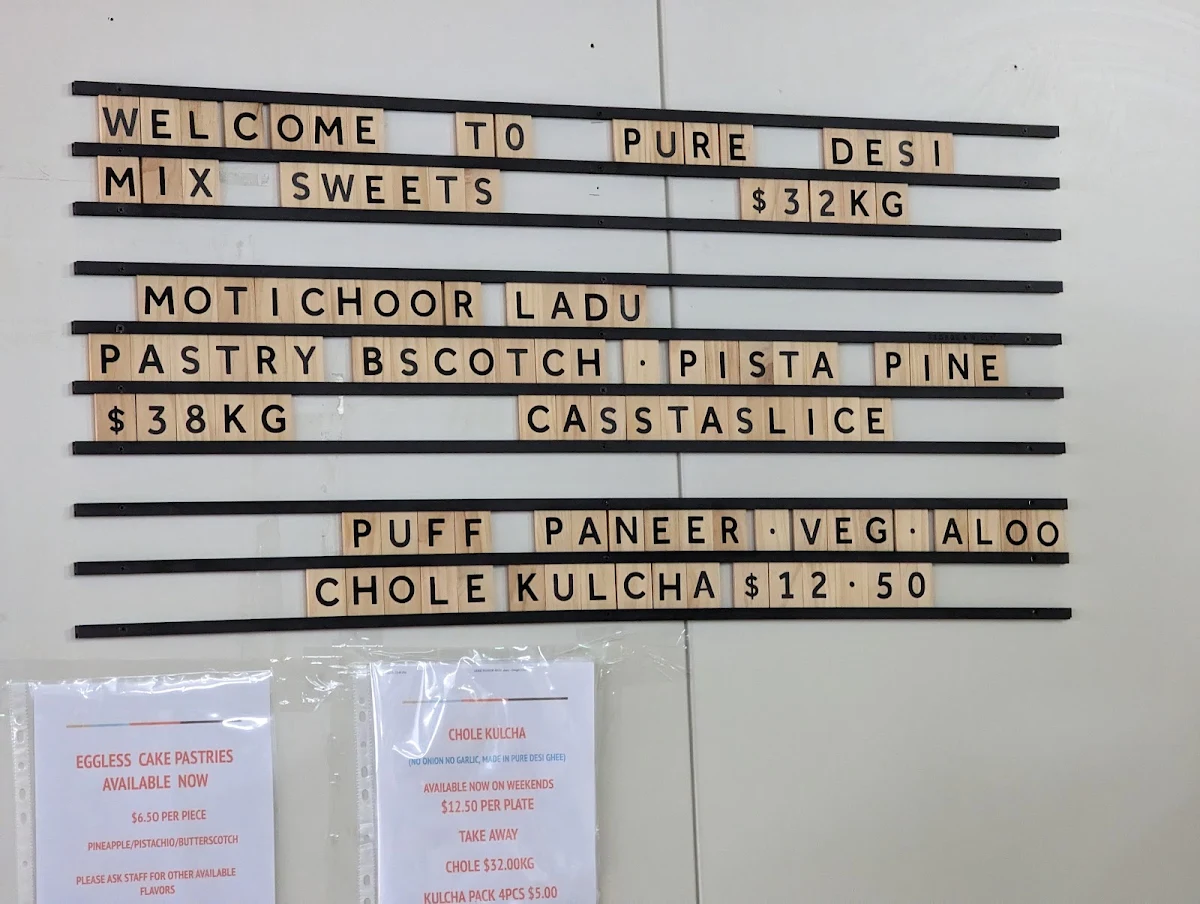 WELCOME TO PURE DESI
MIX SWEETS $32KG
MOTICHOOR LADU
PASTRY BSCOTCH · PISTA PINE
$38KG CASSTASLICE
PUFF PANEER · VEG · ALOO
CHOLE KULCHA $12·50
EGGLESS CAKE PASTRIES
AVAILABLE NOW
$6.50 PER PIECE
PINEAPPLE/PISTACHIO/BUTTERSCOTCH
PLEASE ASK STAFF FOR OTHER AVAILABLE
FLAVORS
CHOLE KULCHA
(NO ONION NO GARLIC, MADE IN PURE DESI GHEE)
AVAILABLE NOW ON WEEKENDS
$12.50 PER PLATE
TAKE AWAY
CHOLE $32.00KG
KULCHA PACK 4PCS $5.00